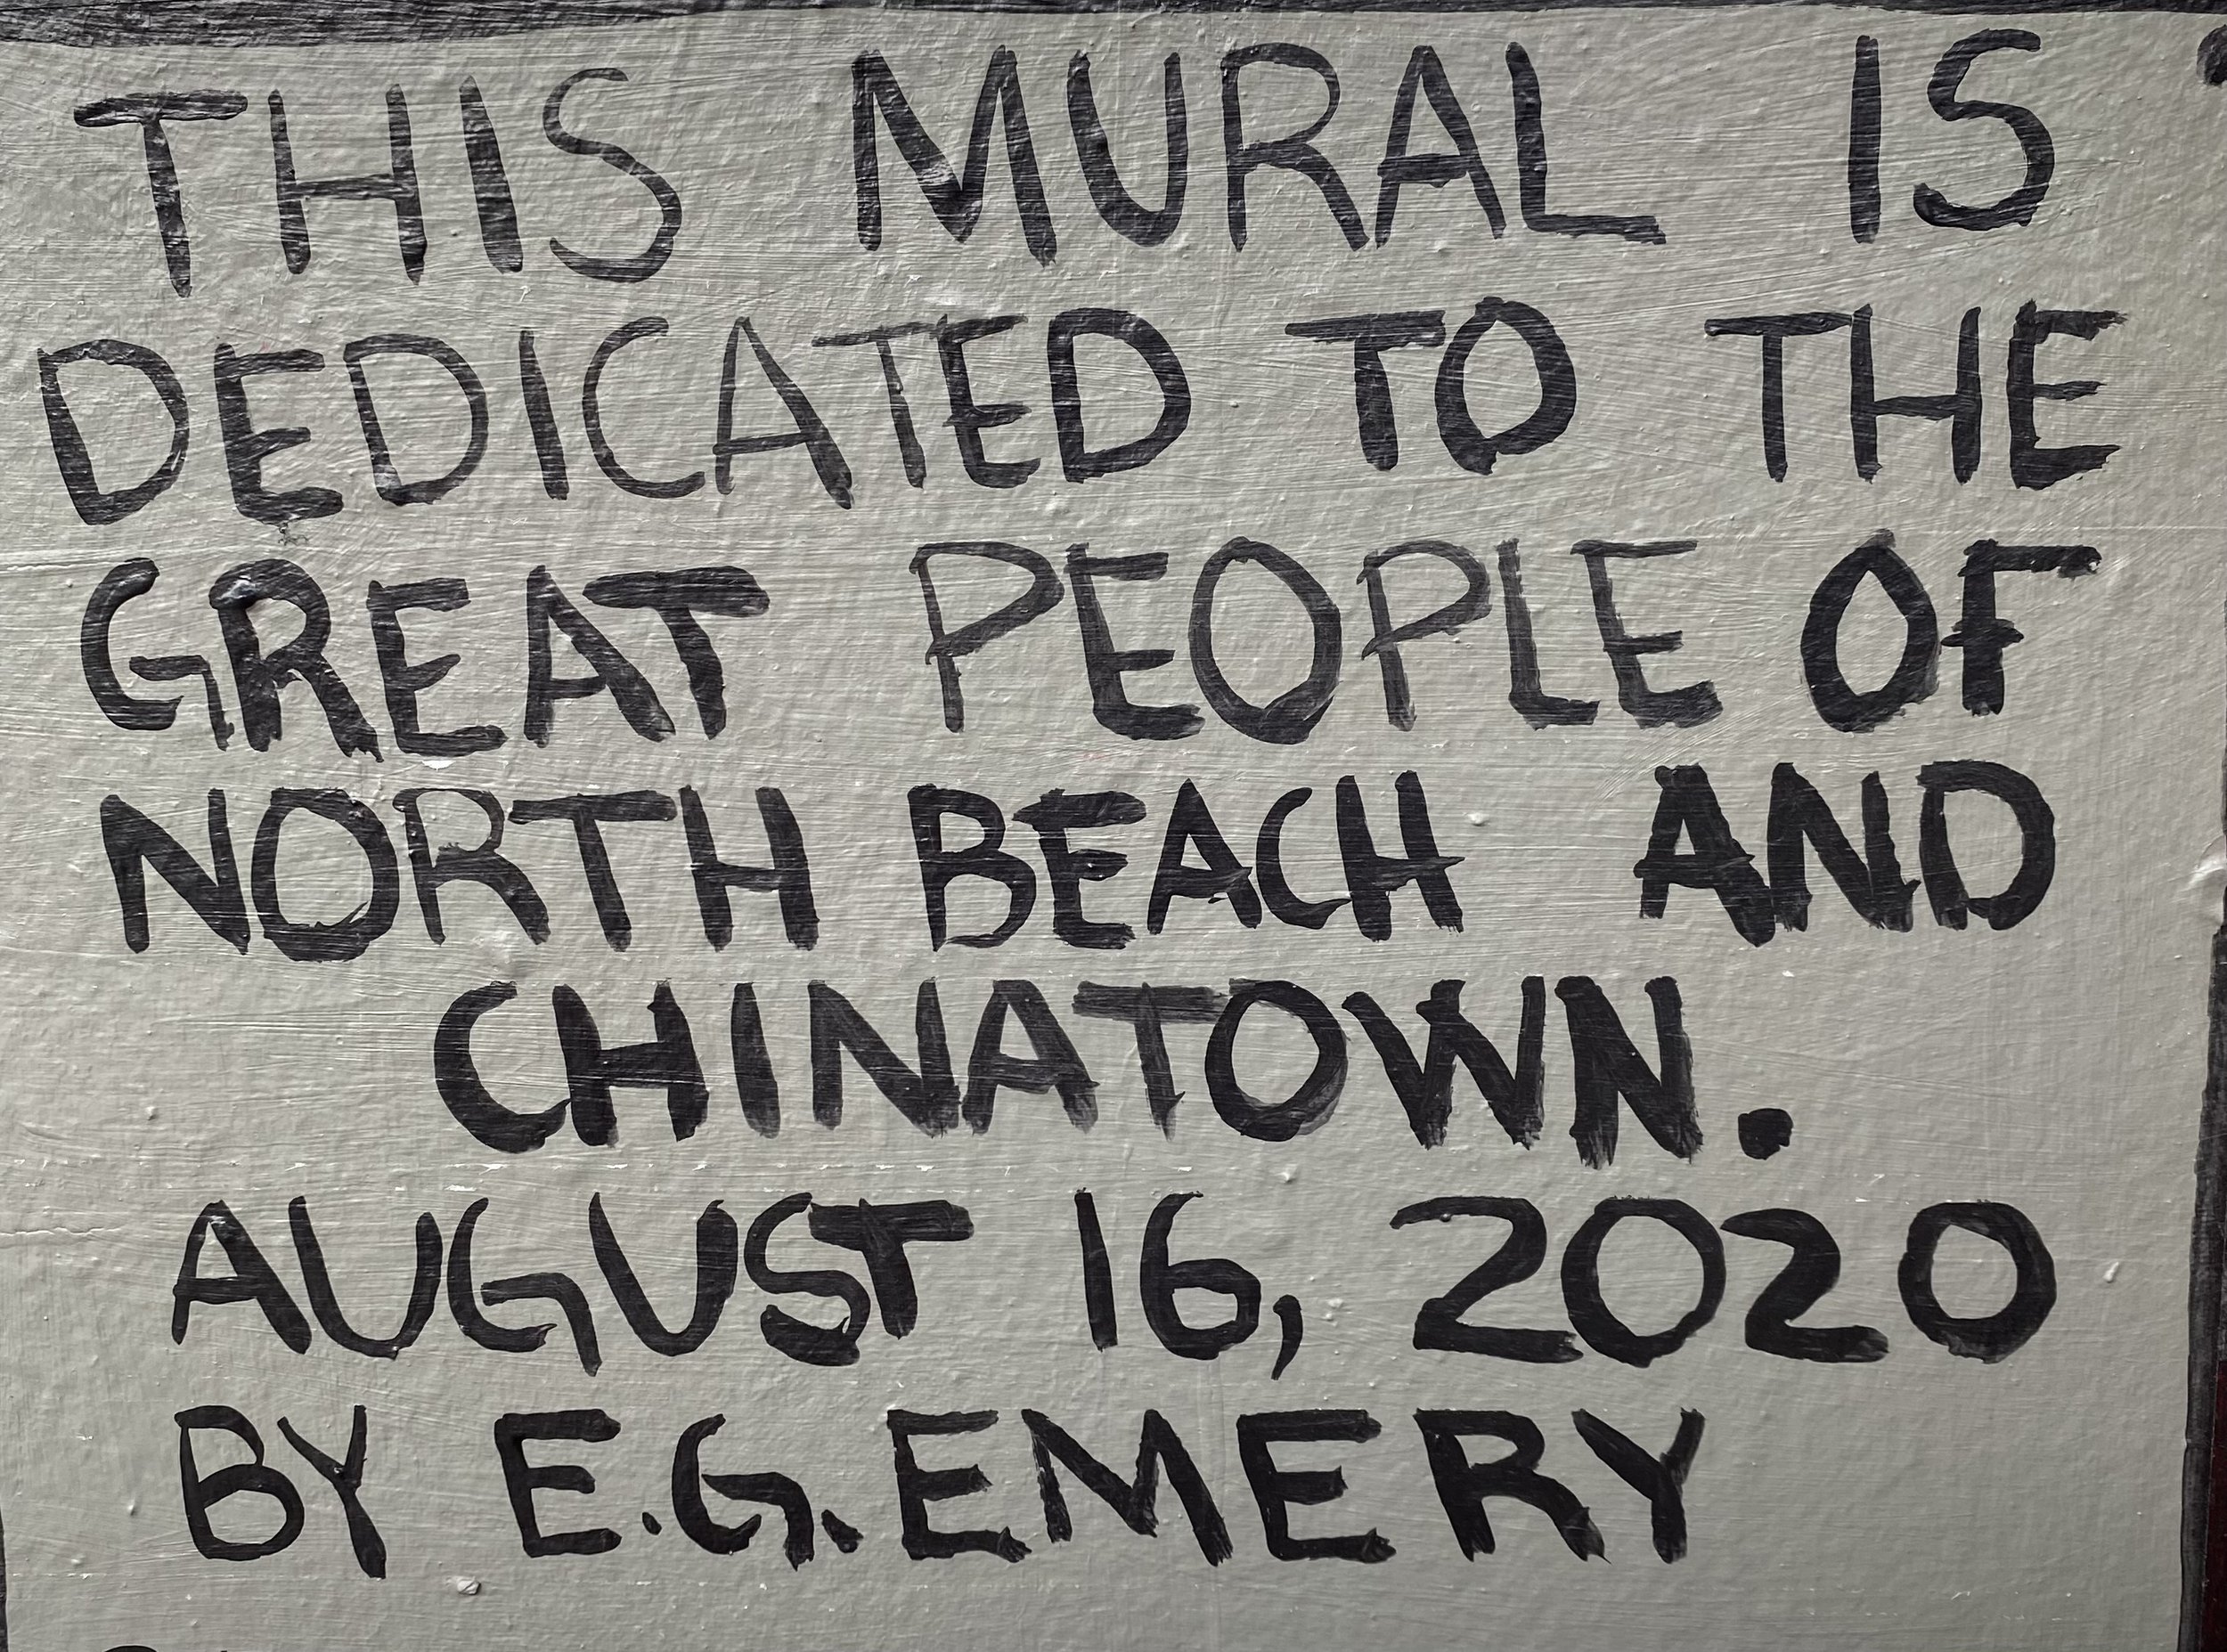 THIS MURAL IS
DEDICATED TO THE
GREAT PEOPLE OF
NORTH BEACH AND
CHINATOWN.
AUGUST 16, 2020
BY E.G. EMERY